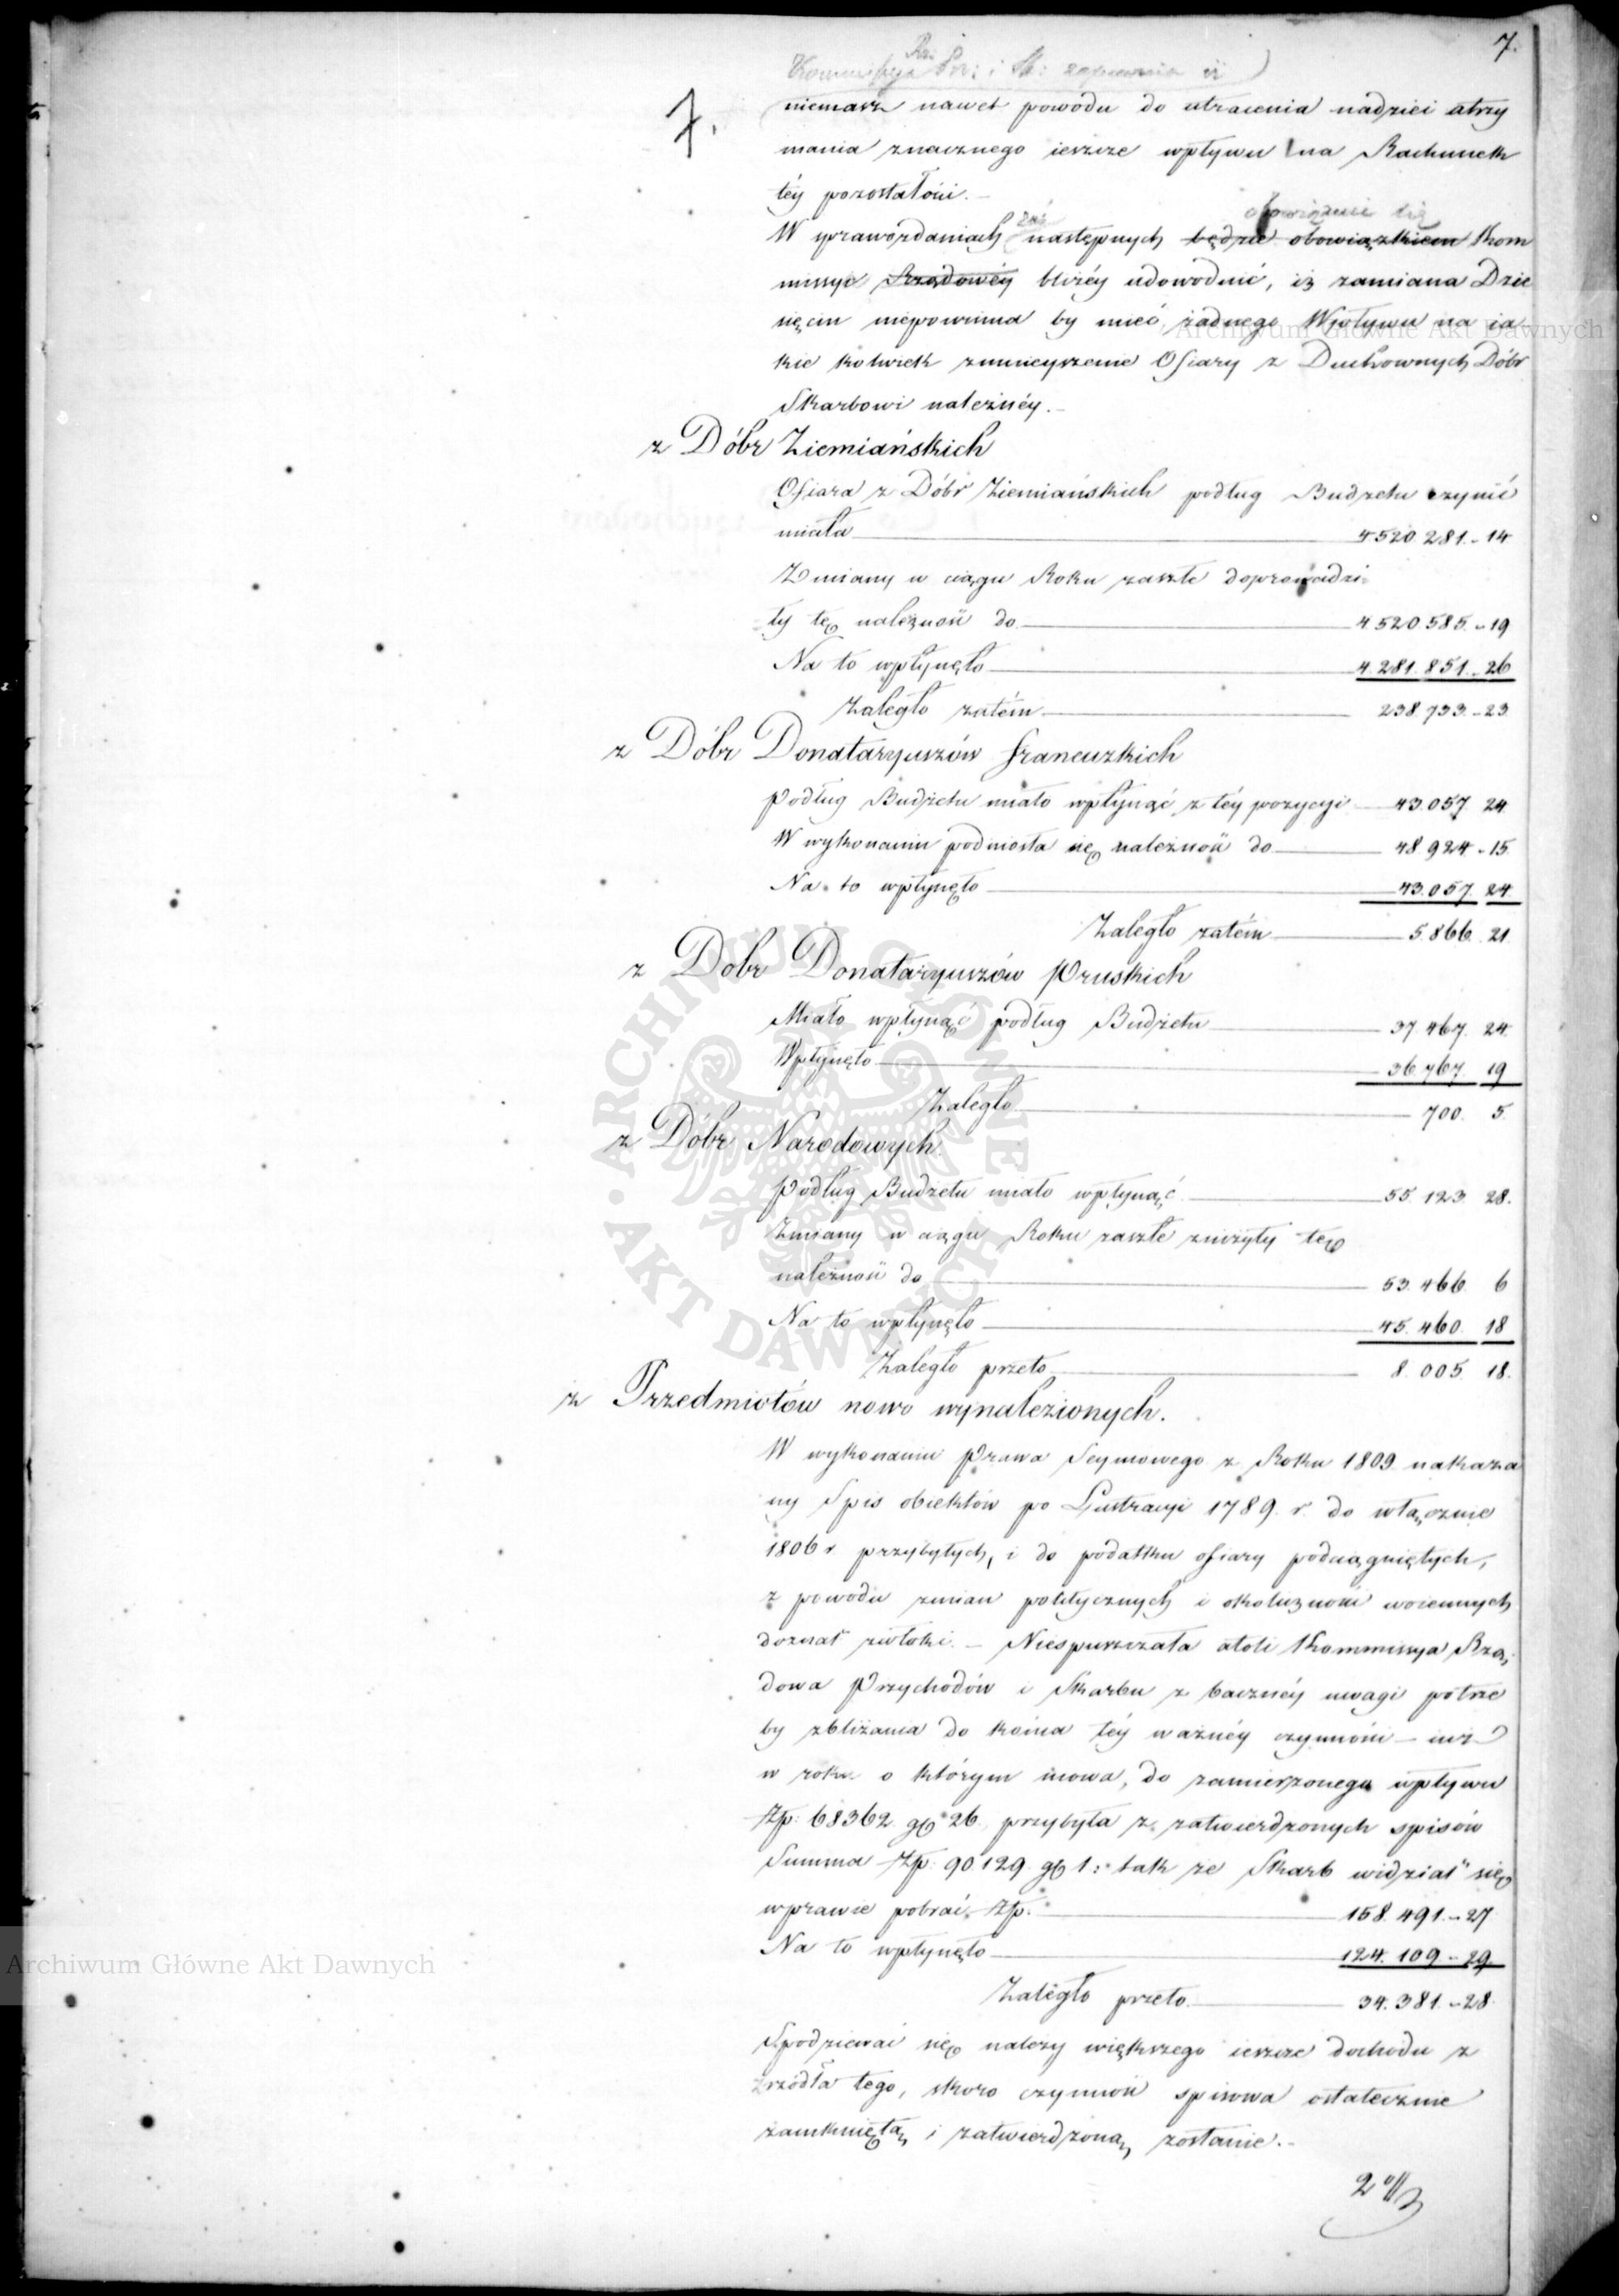 7.
Kommissya Rz: Prz: i Sk: zapewnia iż
7.
niemasz nawet powodu do utracenia nadziei otrzy
mania znacznego ieszcze wpływu na Rachunek
téy pozostałości.
obowiązani się
W sprawozdaniach zaś następnych będzie obowiązkiem Kom
missyi Rządowéy bliżéy udowodnić, iż zamiana Dzie
sięcin niepowinna by mieć żadnego Wpływu na ia
kie kolwiek zmnieyszenie Ofiary z Duchownych Dóbr
Skarbowi należnéy.
z Dóbr Ziemiańskich
Ofiara z Dóbr Ziemiańskich podług Budżetu czynić
miała 4520.281.-14
Zmiany w ciągu Roku zaszłe doprowadzi-
ły tę należność do 4.520.585.-19
Na to wpłynęło 4.281.851.-26
Zaległo zatém 238.733.-23.
z Dóbr Donataryuszów francuzkich
Podług Budżetu miało wpłynąć z téy pozycyi 43.057. 24.
W wykonaniu podniosła się należność do 48 924.-15.
Na to wpłynęło 43.057. 24.
Zaległo zatém 5.866. 21.
z Dobr Donataryuszów Pruskich
Miało wpłynąć podług Budżetu 37.467. 24.
Wpłynęło 36.767. 19
Zaległo 700. 5.
z Dóbr Narodowych.
Podług Budżetu miało wpłynąć 55.123. 28.
Zmiany w ciągu Roku zaszłe zniżyły tę
należność do 53.466. 6
Na to wpłynęło 45.460. 18
Zaległo przeto 8.005. 18.
z Przedmiotów nowo wynalezionych.
W wykonaniu Prawa Seymowego z Roku 1809 nakaza
ny Spis obiektów po Lustracyi 1789. r. do włącznie
1806 r. przybyłych, i do podatku ofiary podciągniętych,
z powodu zmian politycznych i okoliczności woiennych
doznał zwłoki. – Niespuszczała atoli Kommissya Rzą-
dowa Przychodów i Skarbu z baczney uwagi potrze
by zbliżania do końca téy ważnéy czynności – iuż
w roku o którym mowa, do zamierzonego wpływu
Złp: 68362. gr 26. przybyła z zatwierdzonych spisów
Summa Złp: 90.129. gr 1: tak że Skarb widział się
wprawie pobrać Złp. 158.491.-27
Na to wpłynęło 124.109.-29.
Zaległo przeto 34.381.-28.
Spodziewać się należy większego ieszcze dochodu z
źrzódła tego, skoro czynność spisowa ostatecznie
zamkniętą i zatwierdzoną zostanie. –
Archiwum Główne Akt Dawnych
Archiwum Główne Akt Dawnych
ARCHIWUM GŁÓWNE • AKT DAWNYCH •